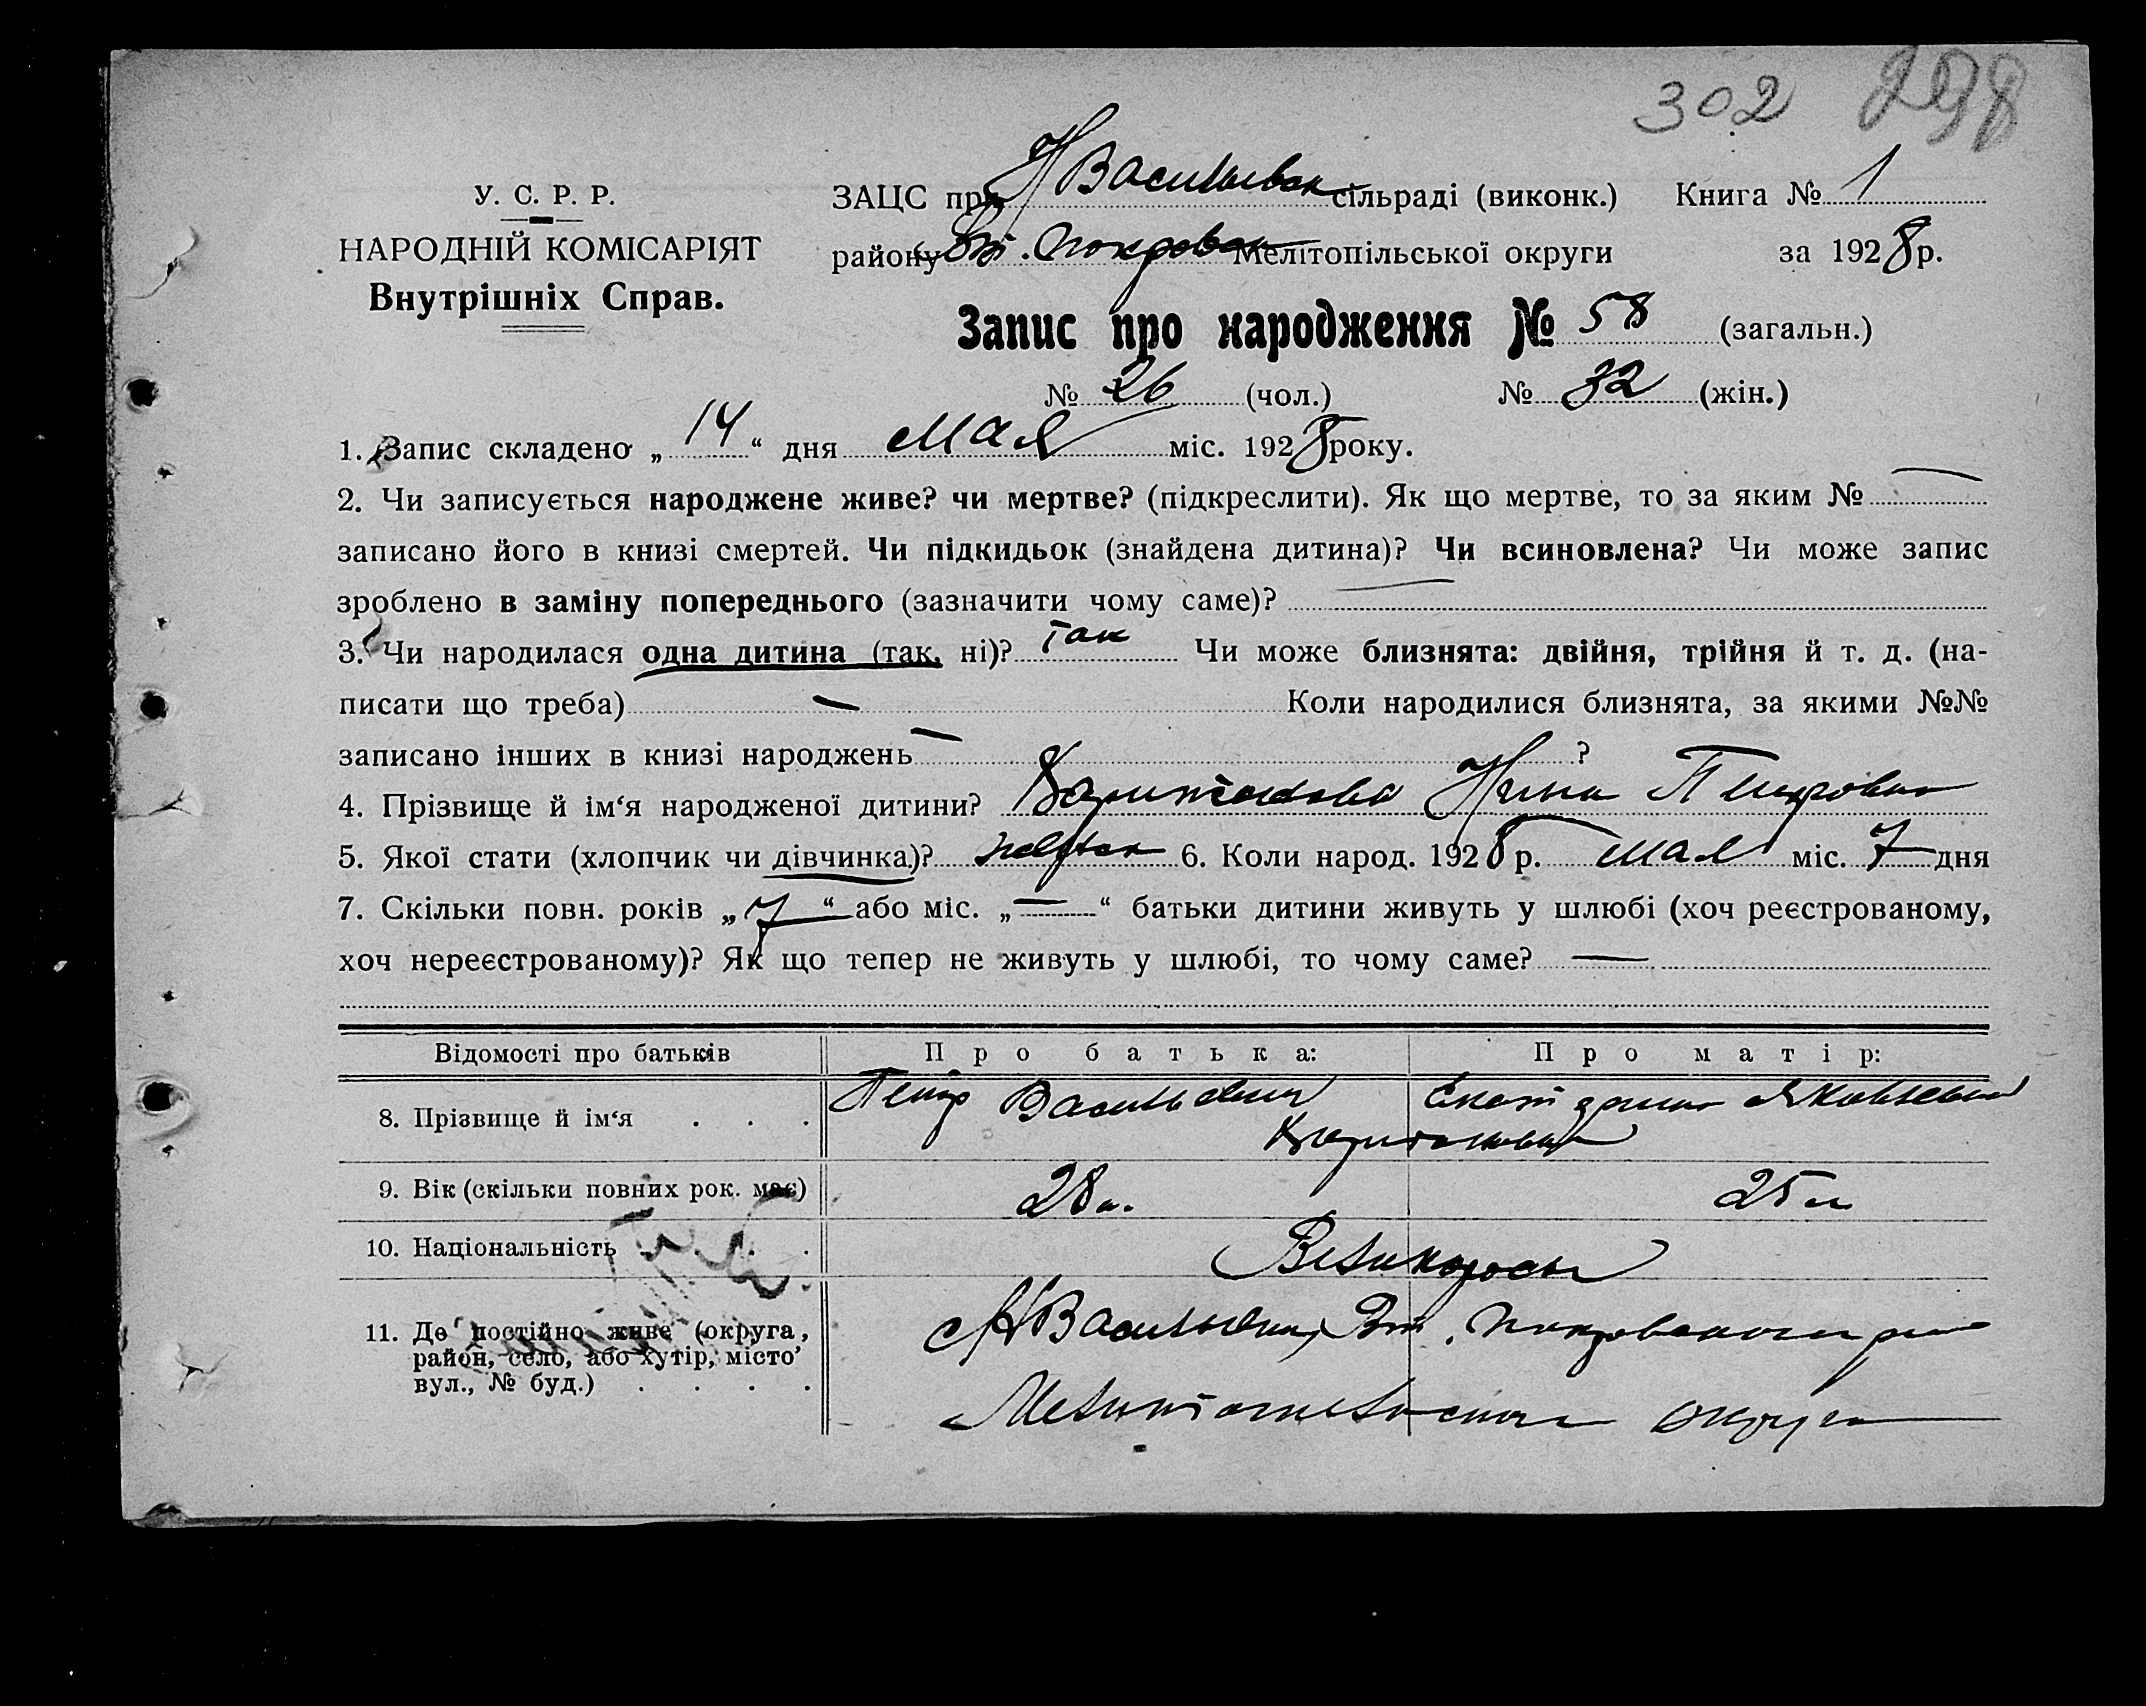 302 298
У. С. Р. Р.
НАРОДНІЙ КОМІСАРІЯТ
Внутрішніх Справ.
ЗАЦС при Н Васильевск сільраді (виконк.) Книга № 1
району Вт. Покровск Мелітопільської округи за 1928 р.
Запис про народження № 58 (загальн.)
№ 26 (чол.) № 32 (жін.)
1. Запис складено „14“ дня мая міс. 1928 року.
2. Чи записується народжене живе? чи мертве? (підкреслити). Як що мертве, то за яким № —
записано його в книзі смертей. Чи підкидьок (знайдена дитина)? Чи всиновлена? Чи може запис
зроблено в заміну попереднього (зазначити чому саме)? —
3. Чи народилася одна дитина (так, ні)? так Чи може близнята: двійня, трійня й т. д. (на-
писати що треба) — Коли народилися близнята, за якими №№
записано інших в книзі народжень — ?
4. Прізвище й ім‘я народженої дитини? Харитонова Нина Петровна
5. Якої стати (хлопчик чи дівчинка)? 6. Коли народ. 1928 р. мая міс. 7 дня
7. Скільки повн. років „7“ або міс. „—“ батьки дитини живуть у шлюбі (хоч реєстрованому,
хоч нереєстрованому)? Як що тепер не живуть у шлюбі, то чому саме? —
Відомості про батьків Про батька: Про матір:
8. Прізвище й ім‘я . . . Петр Васильевич Екатерина Яковлевна
Харитоновы
9. Вік (скільки повних рок. має) 28 л. 25 л
10. Національність . . . . Великороссы
11. Де постійно живе (округа,
район, село, або хутір, місто
вул., № буд.) . . . .
Н Васильевка Вт. Покровского района
Мелитопольского округа